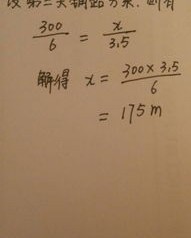 设第二天铺路x米，则有
300/6 = x/3.5
解得 x = 300×3.5/6
= 175 m